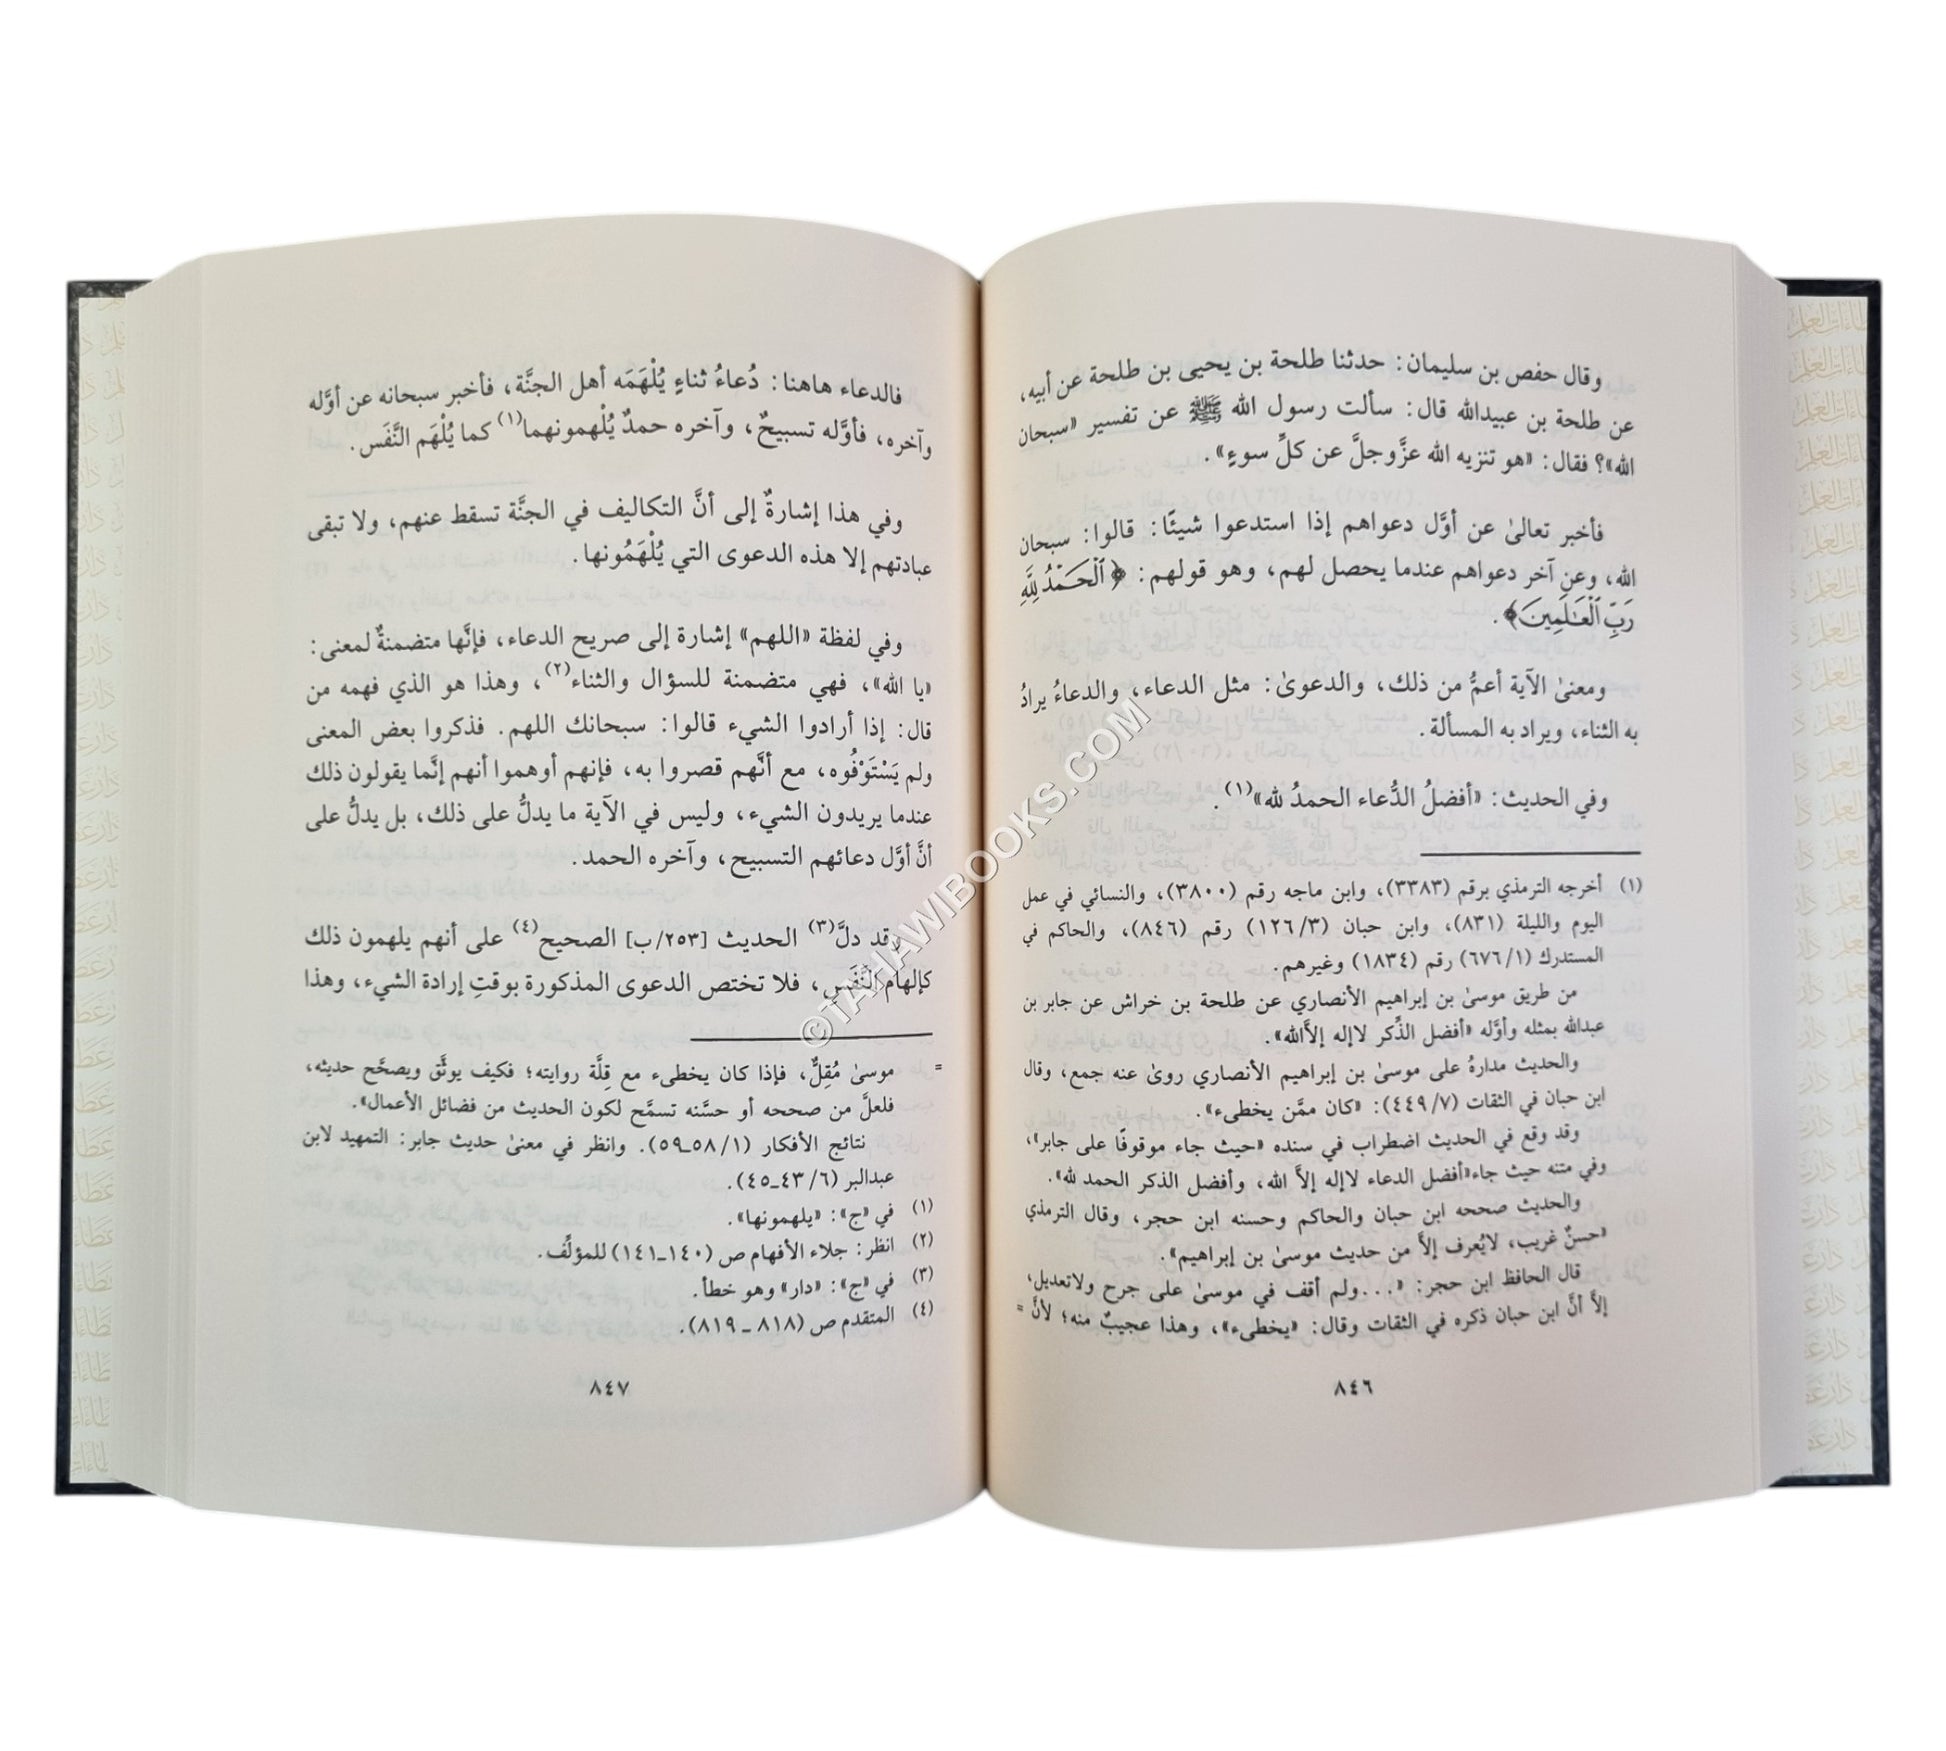 وقال حفص بن سليمان: حدثنا طلحة بن يحيى بن طلحة عن أبيه،
عن طلحة بن عبيدالله قال: سألت رسول الله ﷺ عن تفسير «سبحان
الله»؟ فقال: «هو تنزيه الله عزَّوجلَّ عن كلِّ سوءٍ».
فأخبر تعالىٰ عن أوَّل دعواهم إذا استدعوا شيئًا: قالوا: سبحان
الله، وعن آخر دعواهم عندما يحصل لهم، وهو قولهم: ﴿ٱلْحَمْدُ لِلَّهِ
رَبِّ ٱلْعَـٰلَمِينَ﴾.
ومعنىٰ الآية أعمُّ من ذلك، والدعوىٰ: مثل الدعاء، والدعاءُ يرادُ
به الثناء، ويراد به المسألة.
وفي الحديث: «أفضلُ الدُّعاء الحمدُ لله»(١).
(١) أخرجه الترمذي برقم (٣٣٨٣)، وابن ماجه رقم (٣٨٠٠)، والنسائي في عمل
اليوم والليلة (٨٣١)، وابن حبان (١٢٦/٣) رقم (٨٤٦)، والحاكم في
المستدرك (٦٧٦/١) رقم (١٨٣٤) وغيرهم.
من طريق موسىٰ بن إبراهيم الأنصاري عن طلحة بن خراش عن جابر بن
عبدالله بمثله وأوَّله «أفضل الذِّكر لاإله إلاَّالله».
والحديث مدارهُ على موسىٰ بن إبراهيم الأنصاري روىٰ عنه جمع، وقال
ابن حبان في الثقات (٤٤٩/٧): «كان ممَّن يخطىء».
وقد وقع في الحديث اضطراب في سنده «حيث جاء موقوفًا على جابر»،
وفي متنه حيث جاء«أفضل الدعاء لاإله إلاَّ الله، وأفضل الذكر الحمد لله».
والحديث صححه ابن حبان والحاكم وحسنه ابن حجر، وقال الترمذي
«حسنٌ غريب، لايُعرف إلاَّ من حديث موسىٰ بن إبراهيم».
قال الحافظ ابن حجر: «...ولم أقف في موسىٰ على جرح ولاتعديل،
إلاَّ أنَّ ابن حبان ذكره في الثقات وقال: «يخطىء»، وهذا عجيبٌ منه؛ لأنَّ =
٨٤٦
فالدعاء هاهنا: دُعاءُ ثناءٍ يُلْهَمَه أهل الجنَّة، فأخبر سبحانه عن أوَّله
وآخره، فأوَّله تسبيحٌ، وآخره حمدٌ يُلْهمونهما(١) كما يُلْهَم النَّفَس.
وفي هذا إشارةٌ إلى أنَّ التكاليف في الجنَّة تسقط عنهم، ولا تبقى
عبادتهم إلا هذه الدعوى التي يُلْهَمُونها.
وفي لفظة «اللهم» إشارة إلى صريح الدعاء، فإنَّها متضمنةٌ لمعنى:
«يا الله»، فهي متضمنة للسؤال والثناء(٢)، وهذا هو الذي فهمه من
قال: إذا أرادوا الشيء قالوا: سبحانك اللهم. فذكروا بعض المعنى
ولم يَسْتَوْفُوه، مع أنَّهم قصروا به، فإنهم أوهموا أنهم إنَّما يقولون ذلك
عندما يريدون الشيء، وليس في الآية ما يدلُّ على ذلك، بل يدلُّ على
أنَّ أوَّل دعائهم التسبيح، وآخره الحمد.
وقد دلَّ(٣) الحديث [٢٥٣/ب] الصحيح(٤) على أنهم يلهمون ذلك
كإلهام النَّفَسِ، فلا تختص الدعوى المذكورة بوقتِ إرادة الشيء، وهذا
= موسىٰ مُقِلٌّ، فإذا كان يخطىء مع قِلَّة روايته؛ فكيف يوثَّق ويصحَّح حديثه،
فلعلَّ من صححه أو حسَّنه تسمَّح لكون الحديث من فضائل الأعمال».
نتائج الأفكار (٥٨/١ـ٥٩). وانظر في معنىٰ حديث جابر: التمهيد لابن
عبدالبر (٤٣/٦ـ٤٥).
(١) في «ج»: «يلهمونها».
(٢) انظر: جلاء الأفهام ص (١٤٠ـ١٤١) للمؤلِّف.
(٣) في «ج»: «دار» وهو خطأ.
(٤) المتقدم ص (٨١٨ ـ ٨١٩).
٨٤٧
©TAHAWIBOOKS.COM